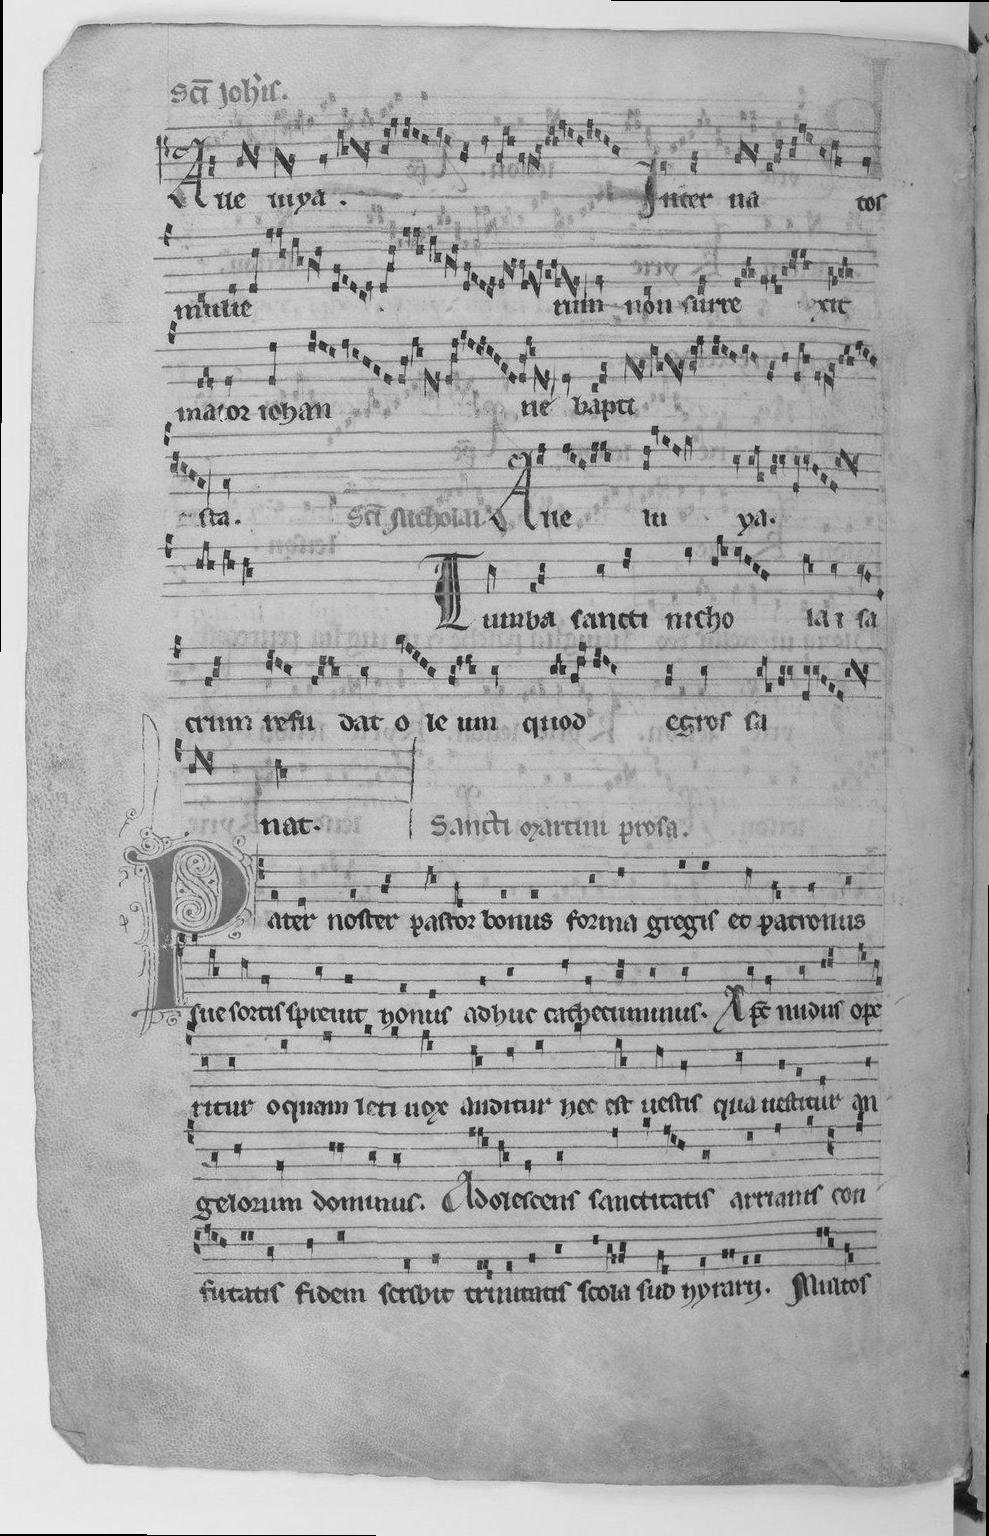 Sci Johis.
Alle luya. Inter na tos
mulie rum non surre xit
maior iohan ne bapti
sta. Sci Nicholai Alle lu ya.
Tumba sancti nicho lai sa
crum resu dat o le um quod egros sa
nat. Sancti martini prosa.
Pater noster pastor bonus forma gregis et patronus
sue sortis spreuit honus adhuc cathecuminus. Xpc nudus ope
ritur o quam leti uox auditur hec est uestis qua uestitur an
gelorum dominus. Adolescens sanctitatis arrianis con
futatis fidem scribit trinitatis scola sub hylarii. Multos